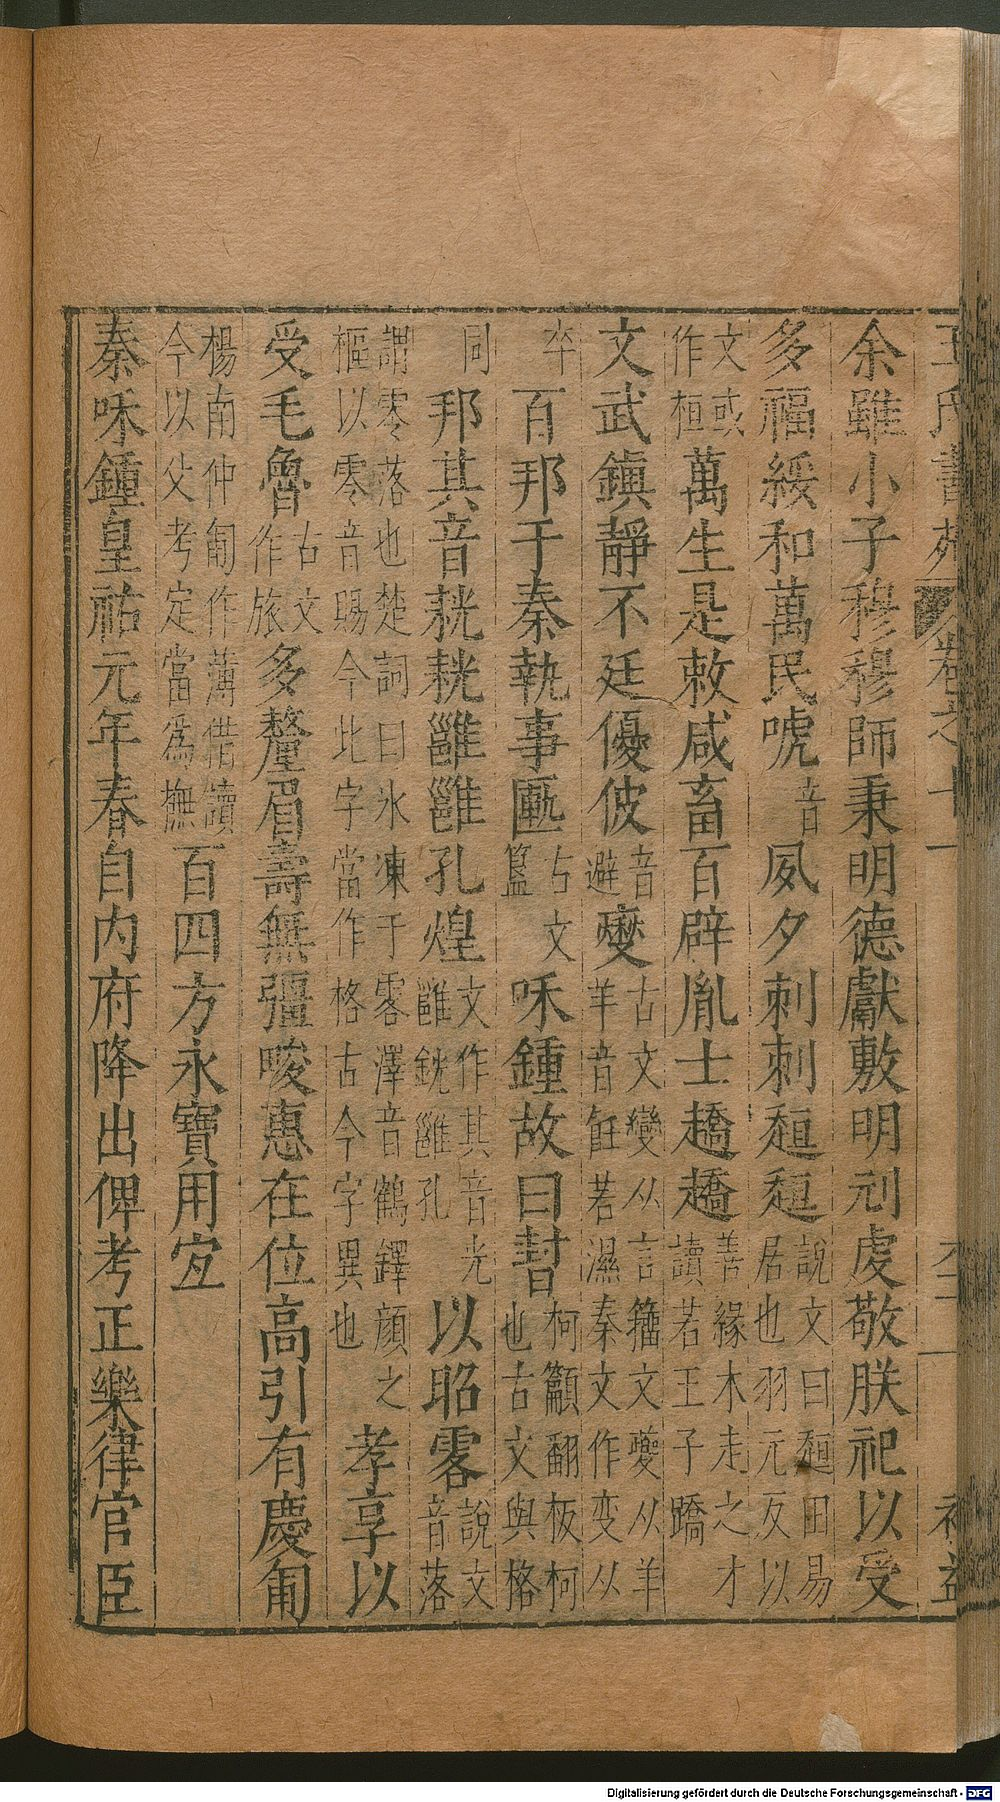 王氏書苑 卷之十一 六十一 補益
余雖小子穆穆師秉明德獻敷明刑虔敬朕祀以受
多福綏和萬民唬音夙夕刺刺趄趄說文曰趄田易居也羽元反以
文或作桓萬生是敕咸畜百辟胤士趫趫善緣木走之才讀若王子蹻
文武鎮靜不廷優伇音避燮古文變从言籀文燮从羊羊音飪若濕秦文作变从
卒百邦于秦執事匭古文簋咊鍾故曰𡄹柯籲翻板柯也古文與格
同邦其音𦔳𦔳雝雝孔煌文作其音光雝銧雝孔以昭零說文音落
謂零落也楚詞曰氷凍于零澤音鶴鐸顔之樞以零音賜今此字當作格古今字異也孝享以
受毛魯古文作旅多釐眉壽無彊畯惠在位高引有慶匍
楊南仲匍作薄借讀今以父考定當爲撫百四方永寶用宐
秦咊鍾皇祐元年春自內府降出俾考正樂律官臣
Digitalisierung gefördert durch die Deutsche Forschungsgemeinschaft - DFG